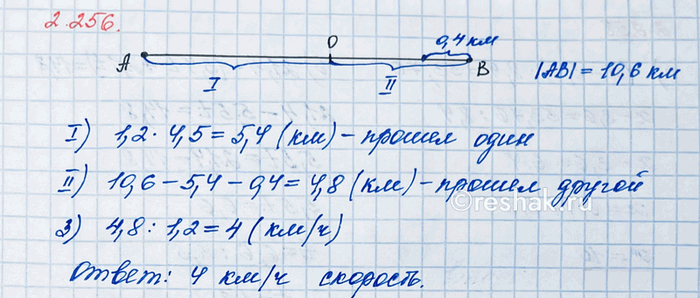 2.256.
0,4 км
A O B
I II
|AB| = 10,6 км
I) 1,2 · 4,5 = 5,4 (км) – прошел один
II) 10,6 – 5,4 – 0,4 = 4,8 (км) – прошел другой
©reshak.ru
3) 4,8 : 1,2 = 4 (км/ч)
Ответ: 4 км/ч скорость.